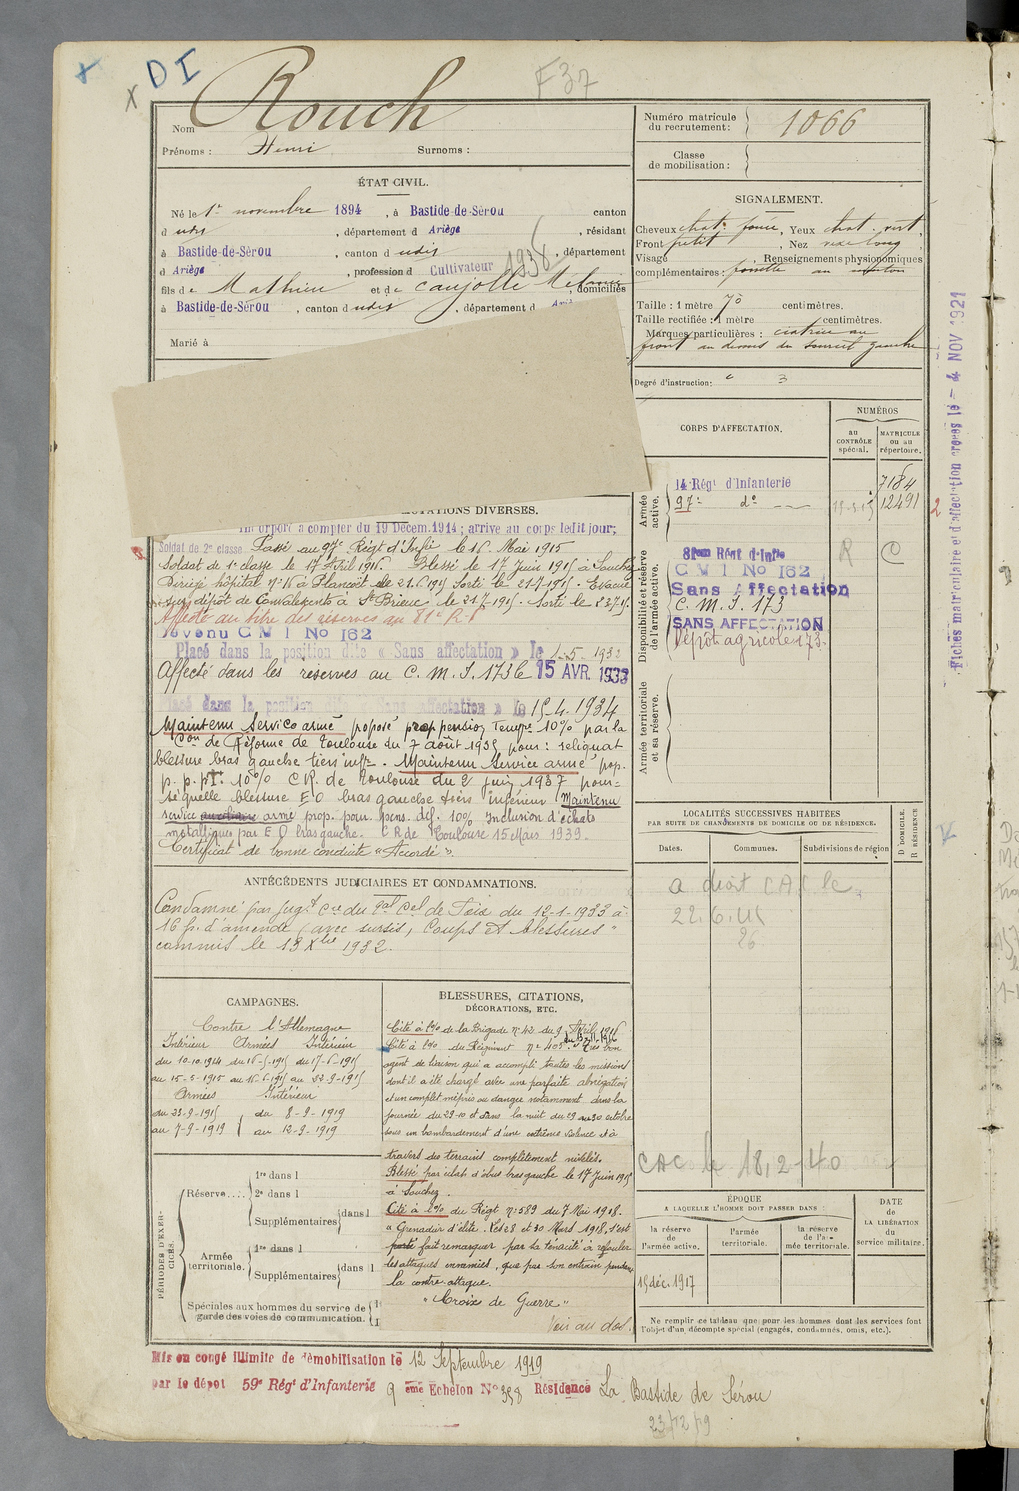 DI
F37
Rouch
Nom
Prénoms : Henri Surnoms :
Numéro matricule du recrutement : 1066
Classe de mobilisation :
ÉTAT CIVIL.
Né le 1er novembre 1894, à Bastide-de-Sérou canton
d udit, département d Ariège, résidant
à Bastide-de-Sérou, canton d udit, département
d Ariège, profession d Cultivateur 1936
fils de Mathieu et de Caujolle Mélanie, domiciliés
à Bastide-de-Sérou, canton d udit, département d
Marié à
SIGNALEMENT.
Cheveux chat. foncé, Yeux chat. vert,
Front petit, Nez
Visage Renseignements physionomiques
complémentaires : au menton
Taille : 1 mètre 70 centimètres.
Taille rectifiée : 1 mètre centimètres.
Marques particulières : cicatrice au
front au dessus du sourcil gauche
Degré d'instruction : 3
Fiches matriculaire et d'affectation créées le - 4 NOV 1921
CORPS D'AFFECTATION.
NUMÉROS
au CONTRÔLE spécial.
MATRICULE ou au répertoire.
Armée active.
14 Régt d'Infanterie 7184
97e do 12491
2
Disponibilité et réserve de l'armée active.
81eme Régt d'Infie R C
C M I No 162
Sans Affectation
C. M. I. 173
SANS AFFECTATION
Dépôt agricole 173.
Armée territoriale et sa réserve.
DIVERSES.
Incorporé à compter du 19 Décem. 1914 ; arrivé au corps ledit jour;
Soldat de 2e classe Passé au 97e Régt d'Infie le 16 Mai 1915
Soldat de 1e classe le 17 Avril 1916. Blessé le 17 Juin 1915 à Souchez
Dirigé hôpital no 16 à Plancoët le 21.6.1915 Sorti le 21.7.1915. Evacué
sur dépôt de Convalescents à St Brieuc le 21.7.1915. Sorti le 23.7.15.
Affecté au titre des réserves au 81e R.I
devenu C M I No 162
Placé dans la position dite « Sans affectation » le 1-5-1932
Affecté dans les réserves au C. M. I. 173 le 15 AVR. 1933
Placé dans la position dite Sans affectation » le 15.4.1934
Maintenu Service armé proposé pension tempre 10% par la
Con de Réforme de Toulouse du 7 août 1935 pour : reliquat
blessure bras gauche tiers infr. Maintenu Service armé prop.
p. p. pt. 10% C.R. de Toulouse du 2 juin 1937 pour :
séquelle blessure E O bras gauche tiers inférieur Maintenu
service auxiliaire armé prop. pour pens. déf. 10% Inclusion d'éclats
métalliques par E O bras gauche. C R de Toulouse 15 Mars 1939.
Certificat de bonne conduite « Accordé ».
LOCALITÉS SUCCESSIVES HABITÉES
PAR SUITE DE CHANGEMENTS DE DOMICILE OU DE RÉSIDENCE.
Dates. Communes. Subdivisions de région
D DOMICILE. R RÉSIDENCE
a droit CAC le
22.6.45
26
CAC le 18.2.40
ANTÉCÉDENTS JUDICIAIRES ET CONDAMNATIONS.
Condamné par Jugt Cel du Bal Cel de Foix du 12-1-1933 à
16 f. d'amende (avec sursis, Coups et blessures "
commis le 13 Xbre 1932.
CAMPAGNES.
Contre l'Allemagne
Intérieur Armées Intérieur
du 10-10-1914 du 16-5-1915 du 17-6-1915
au 15-5-1915 au 16-6-1915 au 22-9-1915
Armées Intérieur
du 23-9-1915 du 8-9-1919
au 7-9-1919 au 12-9-1919
BLESSURES, CITATIONS,
DÉCORATIONS, ETC.
Cité à l'o/o de la Brigade no 42 du 9 Avril 1916
Cité à l'o/o du Régiment no 405 du 13.11.1916 "Très bon
agent de liaison qui a accompli toutes les missions
dont il a été chargé avec une parfaite abnégation
et un complet mépris du danger notamment dans la
journée du 29-10 et dans la nuit du 29 au 30 octobre
sous un bombardement d'une extrême violence et à
travers des terrains complètement nivelés.
Blessé par éclat d'obus bras gauche le 17 Juin 1915
à Souchez.
Cité à l'o/o du Régt no 589 du 7 Mai 1918.
« Grenadier d'élite. Les 28 et 30 Mars 1918, s'est
porté fait remarquer par sa ténacité à refouler
les attaques ennemies, que par son entrain pendant
la contre-attaque.
"Croix de Guerre"
Voir au dos.
PÉRIODES D'EXERCICES.
Réserve....
1re dans l
2e dans l
Supplémentaires dans l
Armée territoriale.
1re dans l
Supplémentaires dans l
Spéciales aux hommes du service de
garde des voies de communication.
ÉPOQUE
A LAQUELLE L'HOMME DOIT PASSER DANS :
DATE DE LA LIBÉRATION du service militaire.
la réserve de l'armée active.
l'armée territoriale.
la réserve de l'armée territoriale.
15 déc. 1917
Ne remplir ce tableau que pour les hommes dont les services font
l'objet d'un décompte spécial (engagés, condamnés, omis, etc.).
Mis en congé illimité de démobilisation le 12 Septembre 1919
par le dépôt 59e Régt d'Infanterie 9 eme Echelon No 358 Résidence La Bastide de Sérou
23/12/19